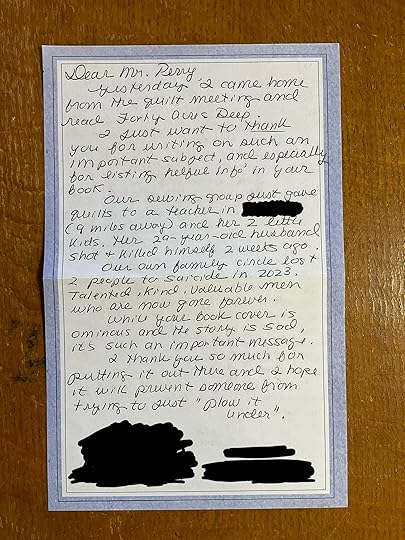 Dear Mr. Perry
Yesterday I came home
from the quilt meeting and
read Forty Acres Deep.
I just want to thank
you for writing on such an
important subject, and especially
for listing helpful info in your
book.
Our sewing group just gave
quilts to a teacher in
(9 miles away) and her 2 little
kids. Her 29-year-old husband
shot & killed himself 2 weeks ago.
Our own family circle lost
2 people to suicide in 2023.
Talented, kind, valuable men
who are now gone forever.
While your book cover is
ominous and the story is sad,
it's such an important message.
I thank you so much for
putting it out there and I hope
it will prevent someone from
trying to just "plow it
under".